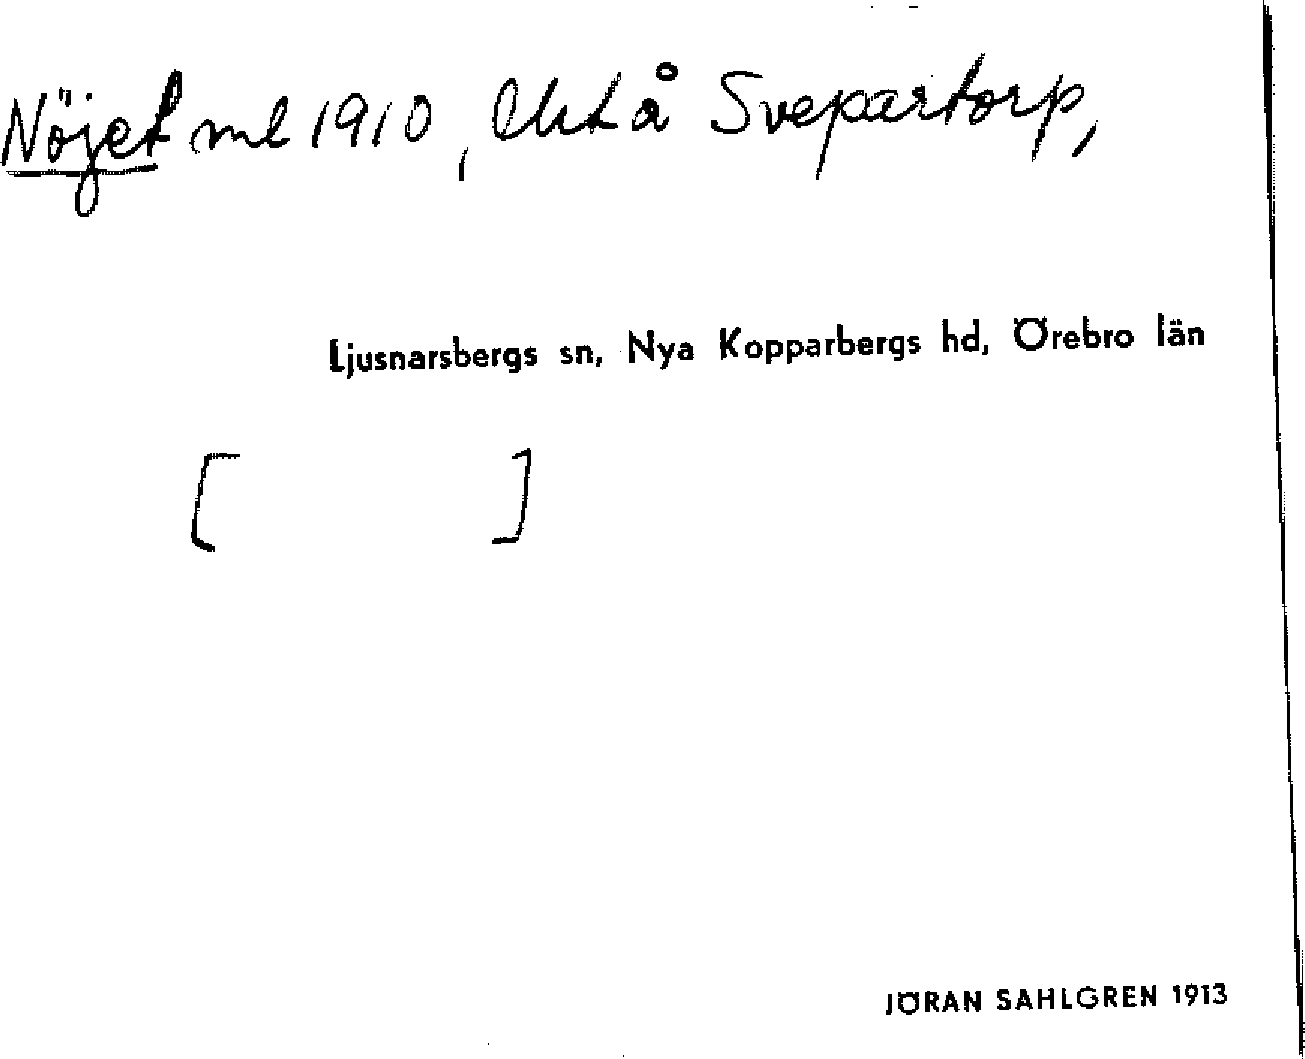 Nöjet ml 1910, å Svepartorp,
Ljusnarsbergs sn, Nya Kopparbergs hd, Örebro län
[ ]
JÖRAN SAHLGREN 1913